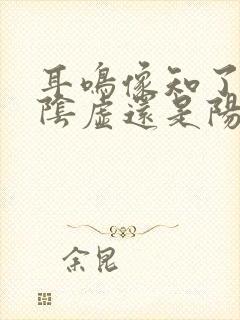 耳鳴像知了
陰虛還是陽
余昆